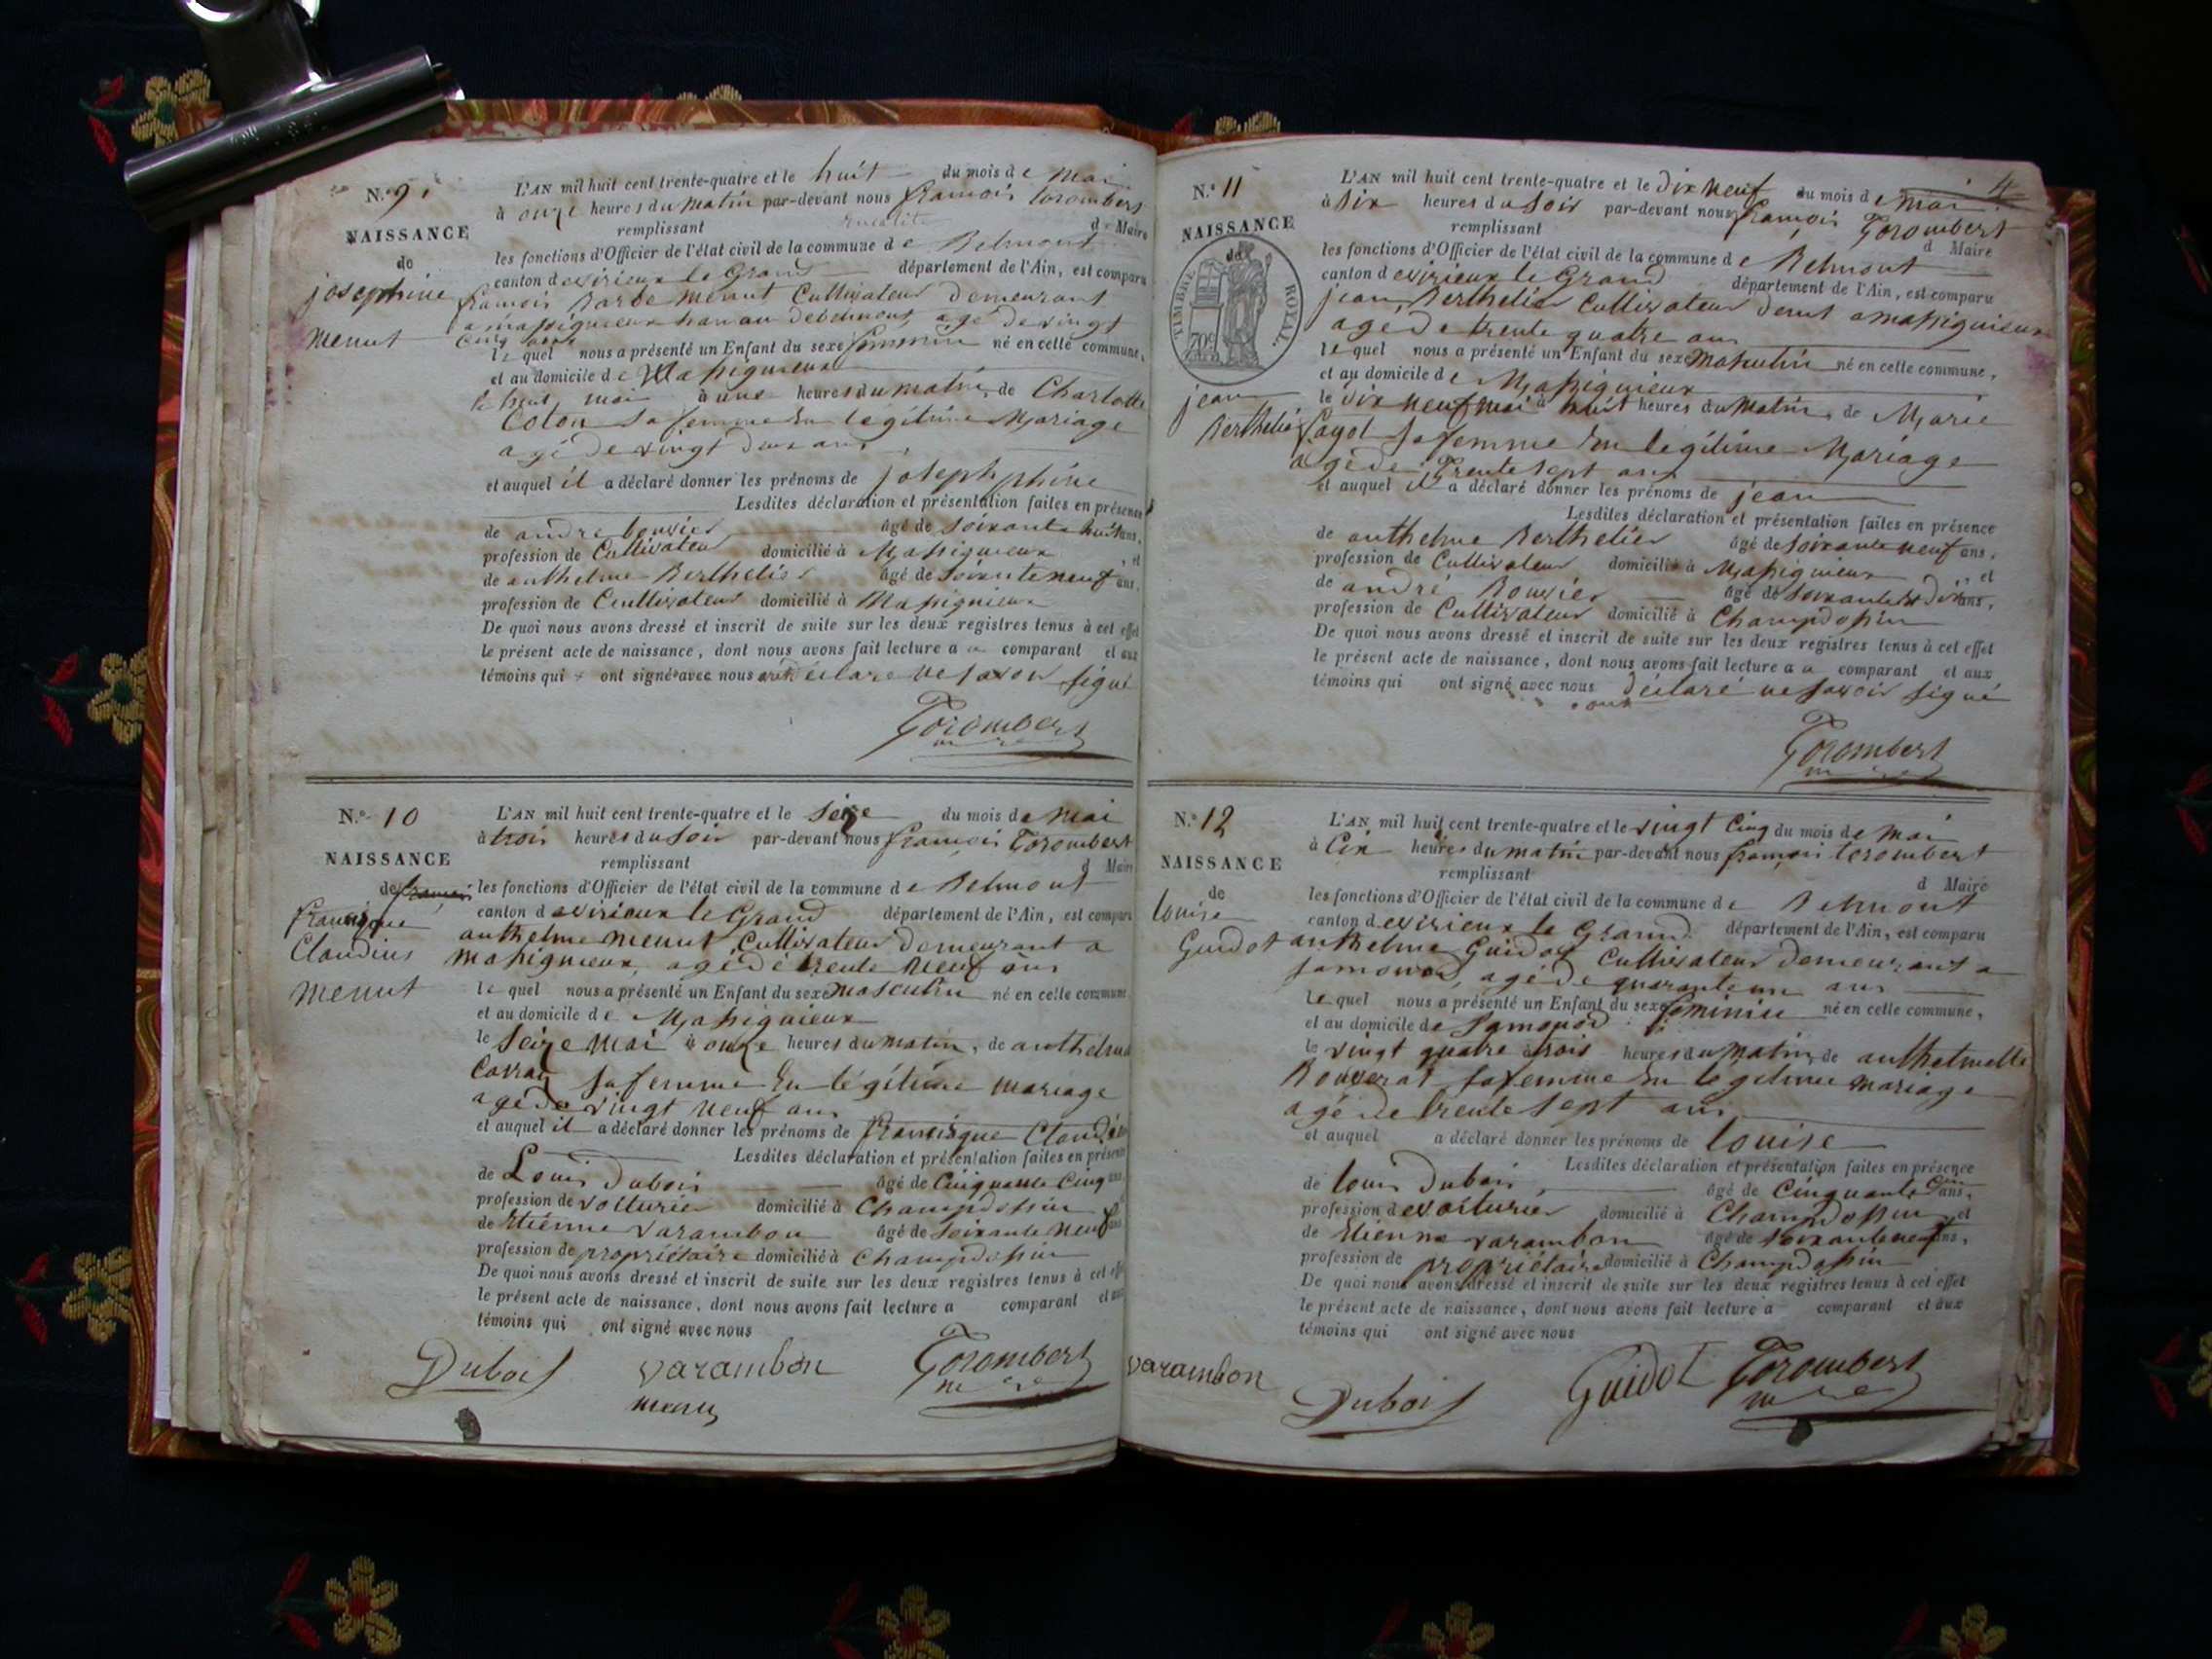 N.º 9.
NAISSANCE
de
josephine
menut
L'AN mil huit cent trente-quatre et le huit du mois de mai
à onze heures du matin par-devant nous françois torombert
remplissant d Maire
les fonctions d'Officier de l'état civil de la commune de Belmont
canton de virieux le Grand département de l'Ain, est comparu
françois Barbe menut Cultivateur demeurant
a massignieux hanau debelmont agé de vingt
cinq ans
le quel nous a présenté un Enfant du sexe feminin né en cette commune,
et au domicile de Massignieux
le huit mai à une heures du matin, de Charlotte
Coton sa femme En légitime Mariage
agé de vingt deux ans
et auquel il a déclaré donner les prénoms de josephphine
Lesdites déclaration et présentation faites en présence
de andre bouvier âgé de soixante huit ans,
profession de Cultivateur domicilié à Massignieux , et
de anthelme Berthelier âgé de soixante neuf ans,
profession de Cultivateur domicilié à Massignieux
De quoi nous avons dressé et inscrit de suite sur les deux registres tenus à cet effet
le présent acte de naissance, dont nous avons fait lecture a u comparant et aux
témoins qui ont signé avec nous ont déclare ne savoir signé
Torombert
N.º 10
NAISSANCE
de françois
francisque
Claudius
menut
L'AN mil huit cent trente-quatre et le séize du mois de mai
à trois heures du soir par-devant nous françois Torombert
remplissant d Maire
les fonctions d'Officier de l'état civil de la commune de Belmont
canton de virieux le Grand département de l'Ain, est comparu
anthelme menut Cultivateur demeurant a
massignieux, agé de trente neuf ans
le quel nous a présenté un Enfant du sexe masculin né en cette commune
et au domicile de Massignieux
le seize mai à onze heures du matin, de anthelme
sa femme En légitime mariage
agé de vingt neuf ans
et auquel il a déclaré donner les prénoms de francisque Claudius
Lesdites déclaration et présentation faites en présence
de Louis Dubois âgé de Cinquante Cinq ans,
profession de voiturier domicilié à Champdossin
de Etienne Varambon âgé de soixante neuf ans
profession de propriétaire domicilié à Champdossin
De quoi nous avons dressé et inscrit de suite sur les deux registres tenus à cet effet
le présent acte de naissance, dont nous avons fait lecture a comparant et aux
témoins qui ont signé avec nous
Dubois varambon Torombert
menu
N.º 11
NAISSANCE
de
TIMBRE ROYAL.
70c
jean
Berthelier
4
L'AN mil huit cent trente-quatre et le dix neuf du mois de mai
à six heures du soir par-devant nous françois Torombert
remplissant d Maire
les fonctions d'Officier de l'état civil de la commune de Belmont
canton de virieux le Grand département de l'Ain, est comparu
jean Berthelier Cultivateur demt a massignieux
agé de trente quatre ans
le quel nous a présenté un Enfant du sexe masculin né en cette commune,
et au domicile de Massignieux
le dix neuf mai à huit heures du matin, de Marie
sa femme En légitime Mariage
agé de trente sept ans
et auquel il a déclaré donner les prénoms de jean
Lesdites déclaration et présentation faites en présence
de anthelme Berthelier âgé de soixante neuf ans,
profession de Cultivateur domicilié à Massignieux , et
de andré Bouvier âgé de soixante dix ans,
profession de Cultivateur domicilié à Champdossin
De quoi nous avons dressé et inscrit de suite sur les deux registres tenus à cet effet
le présent acte de naissance, dont nous avons fait lecture a u comparant et aux
témoins qui ont signé avec nous ont déclaré ne savoir signé
Torombert
N.º 12
NAISSANCE
de
louise
Guidot
L'AN mil huit cent trente-quatre et le vingt Cinq du mois de mai
à Cix heures du matin par-devant nous françois torombert
remplissant d Maire
les fonctions d'Officier de l'état civil de la commune de Belmont
canton de virieux le Grand département de l'Ain, est comparu
anthelme Guidot Cultivateur demeurant a
samonod, agé de quarante un ans
le quel nous a présenté un Enfant du sexe feminin né en cette commune,
et au domicile de samonod
le vingt quatre à trois heures du matin, de anthelmette
sa femme En légitime mariage
agé de trente sept ans
et auquel a déclaré donner les prénoms de louise
Lesdites déclaration et présentation faites en présence
de louis Dubois âgé de Cinquante Cinq ans,
profession de voiturier domicilié à Champdossin , et
de Etienne varambon âgé de soixante neuf ans,
profession de propriétaire domicilié à Champdossin
De quoi nous avons dressé et inscrit de suite sur les deux registres tenus à cet effet
le présent acte de naissance, dont nous avons fait lecture a comparant et aux
témoins qui ont signé avec nous
varambon Dubois Guidot Torombert